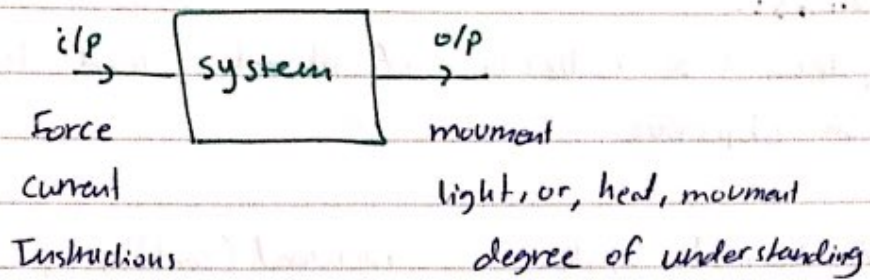 i/p system o/p
Force movment
Current light, or, heat, movment
Instructions degree of understanding